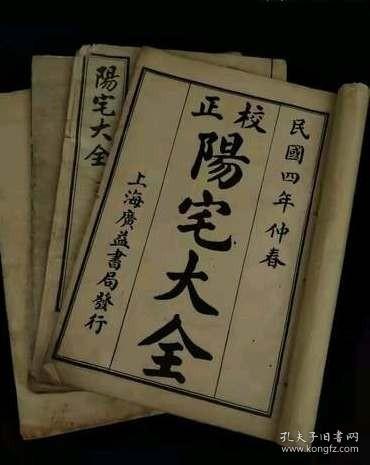 民國四年仲春
校正
陽宅大全
上海廣益書局發行
陽宅大全
孔夫子旧书网
kongfz.com